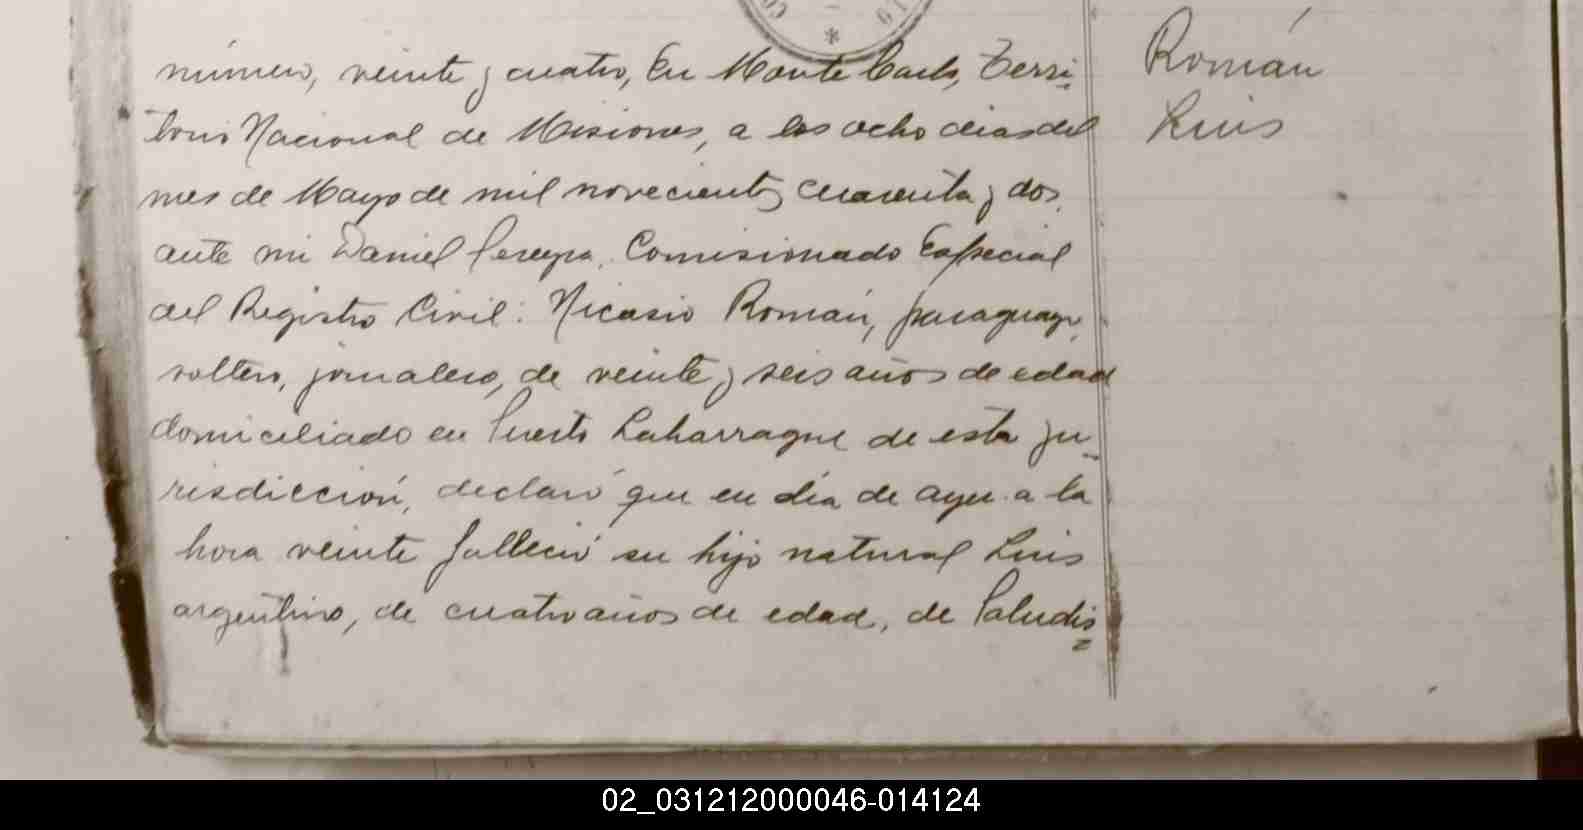 número, veinte y cuatro, En Monte Carlo, Terri=
torio Nacional de Misiones, a los ocho dias del
mes de Mayo de mil novecientos cuarenta y dos,
ante mi Daniel Pereyra, Comisionado Especial
del Registro Civil: Nicasio Román, paraguayo,
soltero, jornalero, de veinte y seis años de edad
domiciliado en Puerto Laharrague de esta ju=
risdicción, declaró que en día de ayer a la
hora veinte falleció su hijo natural Luis
argentino, de cuatro años de edad, de Paludis=
Román
Luis
02_031212000046-014124